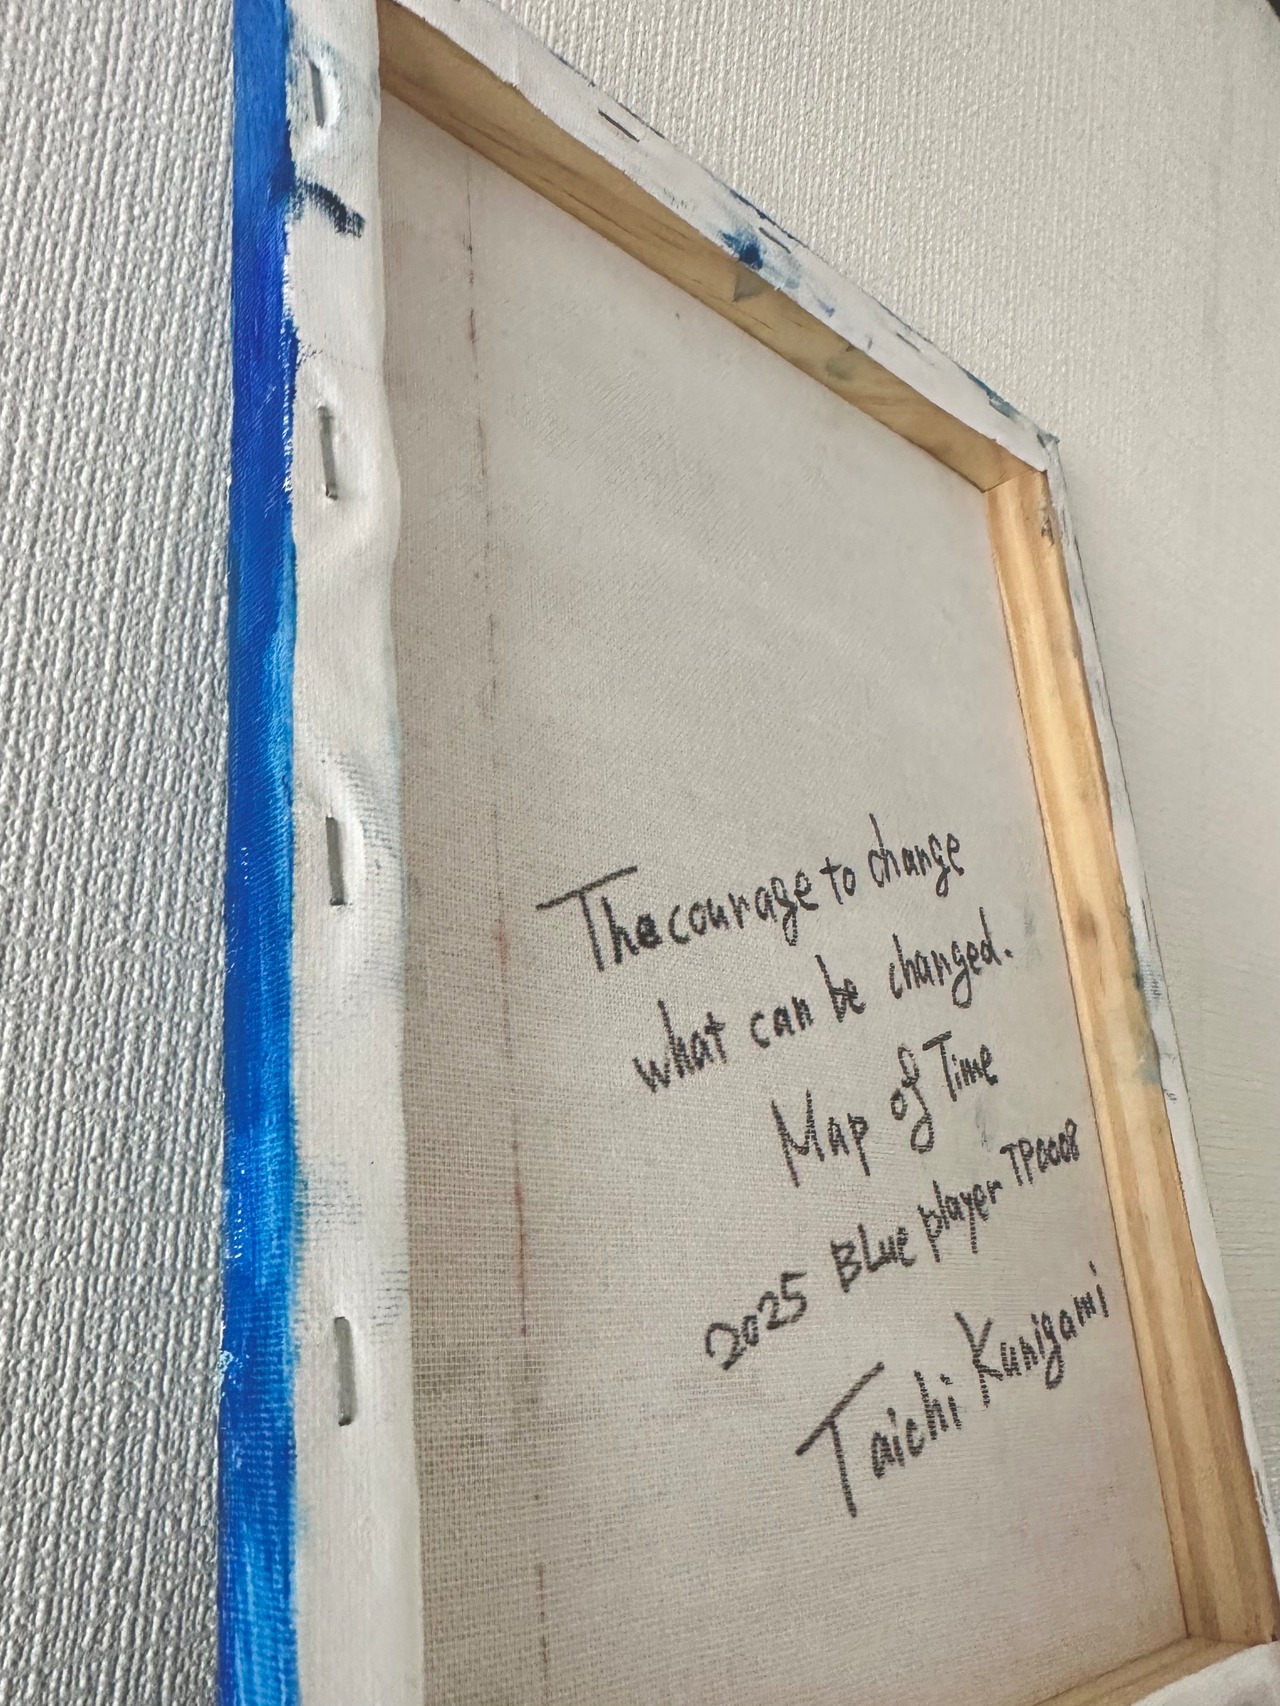 The courage to change
what can be changed.
Map of Time
2025 Blue player TP0008
Taichi Kunigami